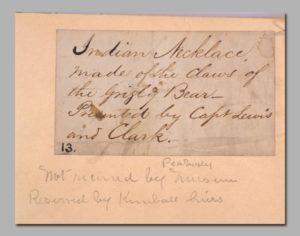 Indian Necklace,
made of the claws of
the Grizly Bear
Presented by Capt Lewis
and Clark.
13.
Peabody
Not received by Museum
Reserved by Kimball heirs